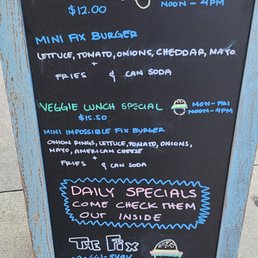 $12.00
NOON - 4PM
MINI FIX BURGER
LETTUCE, TOMATO, ONIONS, CHEDDAR, MAYO
+
FRIES & CAN SODA
VEGGIE LUNCH SPECIAL MON-FRI
$15.50 NOON-4PM
MINI IMPOSSIBLE FIX BURGER
ONION RINGS, LETTUCE, TOMATO, ONIONS,
MAYO, AMERICAN CHEESE
+
FRIES & CAN SODA
DAILY SPECIALS
COME CHECK THEM
OUT INSIDE
THE FIX